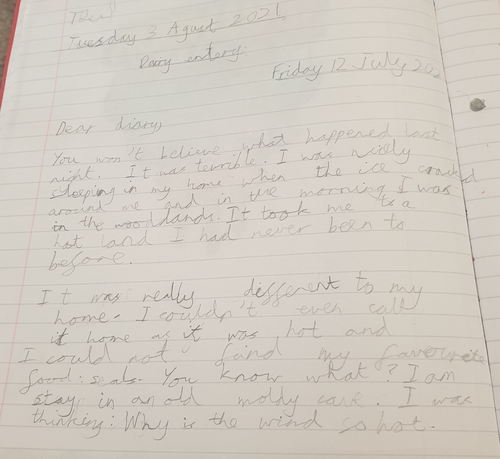 Tuesday 3 Agust 2021
Diary entery
Friday 12 July, 202
Dear diary,
You won't believe what happened last
night. It was terrible. I was nicely
sleeping in my home when the ice cracked
around me and in the morning I was
in the woodlands. It took me to a
hot land I had never been to
before.
It was really different to my
home. I couldn't even call
it home as it was hot and
I could not find my favourite
food: seals. You know what? I am
stay in an old moldy cave. I was
thinking: Why is the wind so hot.